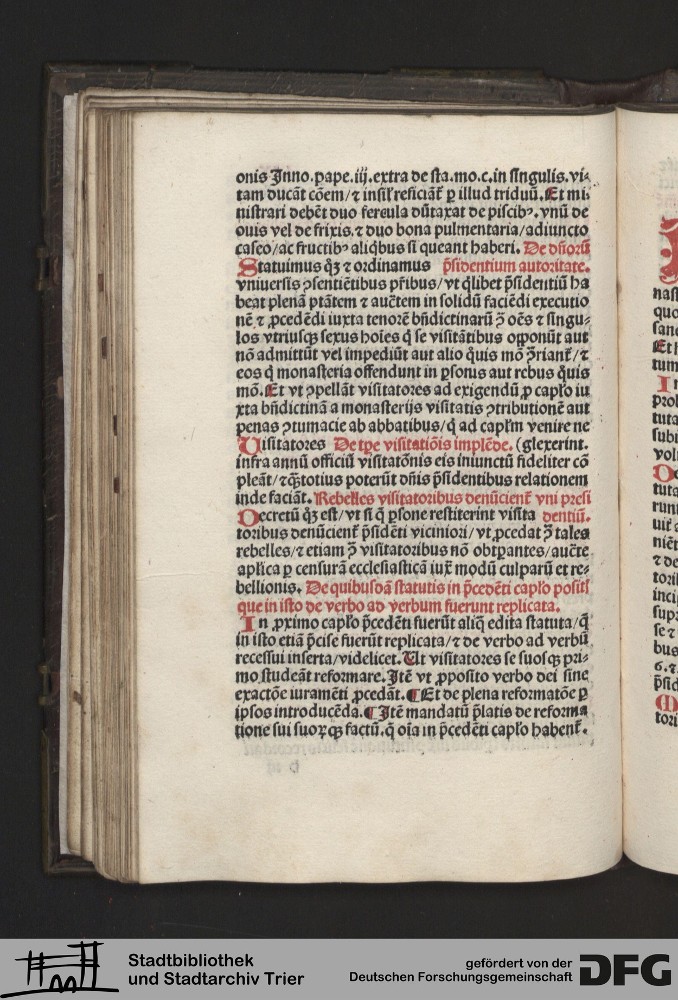 onis Inno.pape.iij.extra de sta.mo.c.in singulis.vi⸗
tam ducāt cōem/⁊ insil' reficiāť ꝑ illud triduū. Et mi⸗
nistrari debēt duo fercula dūtaxat de piscibꝰ. vnū de
ouis vel de frixis.⁊ duo bona pulmentaria/adiuncto
caseo/ac fructibꝰ aliq̄bus si queant haberi. De dn̄orū
Statuimus qꝫ ⁊ ordinamus p̄sidentium autoritate.
vniuersis ꝯsentiētibus pr̄ibus/vt q̄libet p̄sidentiū ha
beat plenā ptātem ⁊ auctēm in solidū faciēdi executio
nē ⁊ ꝓcedēdi iuxta tenorē bn̄dictinarū ꝯ̄ oēs ⁊ singu⸗
los vtriusqꝫ sexus hoīes q̄ se visitātibus opponūt aut
nō admittūt vel impediūt aut alio q̄uis mō ꝯ̄rianť/⁊
eos q̄ monasteria offendunt in ꝑsonis aut rebus q̄uis
mō. Et vt ꝯpellāt visitatores ad exigendū ꝓ capl'o iu
xta bn̄dictinā a monasterijs visitatis ꝯtributionē aut
penas ꝯtumacie ab abbatibus/q̄ ad capl'm venire ne
Visitatores De tp̄e visitatiōis implēde. (glexerint.
infra annū officiū visitatōnis eis iniunctū fideliter cō
pleāt/⁊ q̄ꝫtotius poterūt dn̄is p̄sidentibus relationem
inde faciāt. Rebelles visitatoribus denūcienť vni presi
Decretū qꝫ est/vt si q̄ ꝑsone restiterint visita dentiū.
toribus denūcienť p̄sidēti viciniori/vt ꝓcedat ꝯ̄ tales
rebelles/⁊ etiam ꝯ̄ visitatoribus nō obtꝑantes/aucťe
apl'ica ꝑ censurā ecclesiasticā iux̄ modū culparū et re⸗
bellionis. De quibusdā statutis in p̄cedēti capl'o posit'
que in isto de verbo ad verbum fuerunt replicata.
In ꝓximo capl'o p̄cedēti fuerūt aliq̄ edita statuta/q̄
in isto etiā p̄cise fuerūt replicata/⁊ de verbo ad verbū
recessui inserta/videlicet. Ut visitatores se suosqꝫ pri⸗
mo studeāt reformare. Itē vt ꝓposito verbo dei sine
exactōe iuramēti ꝓcedāt. ¶Et de plena reformatōe ꝑ
ipsos introducēda. ¶Itē mandatū p̄latis de reforma
tione sui suorꝫqꝫ factū. q̄ oīa in p̄cedēti capl'o habenť.
Stadtbibliothek
und Stadtarchiv Trier
gefördert von der
Deutschen Forschungsgemeinschaft
DFG